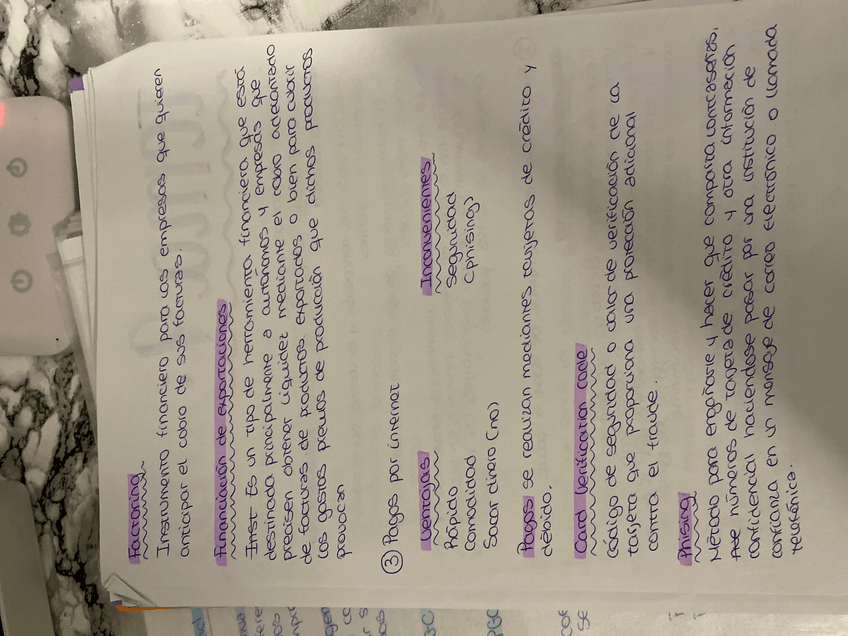 Factoring
Instrumento financiero para las empresas que quieren
anticipar el cobro de sus facturas.
Financiación de exportaciones
Inst Es un tipo de herramienta financiera que está
destinada principalmente a autónomos y empresas que
precisen obtener liquidez mediante el cobro adelantado
de facturas de productos exportados o bien para cubrir
los gastos previos de producción que dichos productos
provocan
③ Pagos por internet
Ventajas Inconvenientes
Rápido Seguridad
Comodidad (phising)
Sacar dinero (no)
Pagos se realizan mediantes tarjetas de crédito y
débido.
Card Verification code
Código de seguridad o valor de verificación de la
tarjeta que proporciona una protección adicional
contra el fraude.
Phising
Método para engañarte y hacer que comparta contraseñas,
números de tarjeta de crédito y otra información
confidencial haciendose pasar por una institución de
confianza en un mensaje de correo electrónico o llamada
telefónica.